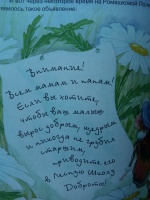 и вот через некоторое время на Ромашковой
явилось такое объявление:
Внимание!
Всем мамам и папам!
Если вы хотите,
чтобы ваш малыш
вырос добрым, щедрым
и никогда не грубил
старшим,
приводите его
в Лесную Школу
Доброты!